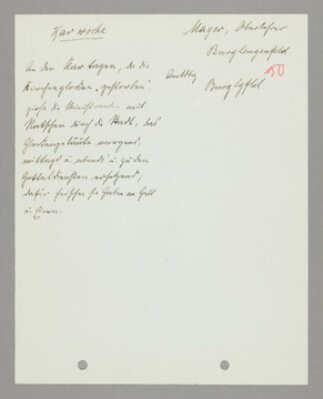 Karwoche
Mayer, Oberlehrer
Burglengenfeld
150
Amtsbez.
Burglgfld
An den Kartagen, da die
Kirchenglocken „gestorben",
ziehen die Ministranten mit
Ratschen durch die Stadt, das
Glockengeläute morgens,
mittags u. abends u. zu den
Gottesdiensten ersetzend,
dafür heischen sie Gaben an Geld
u. Eiern.